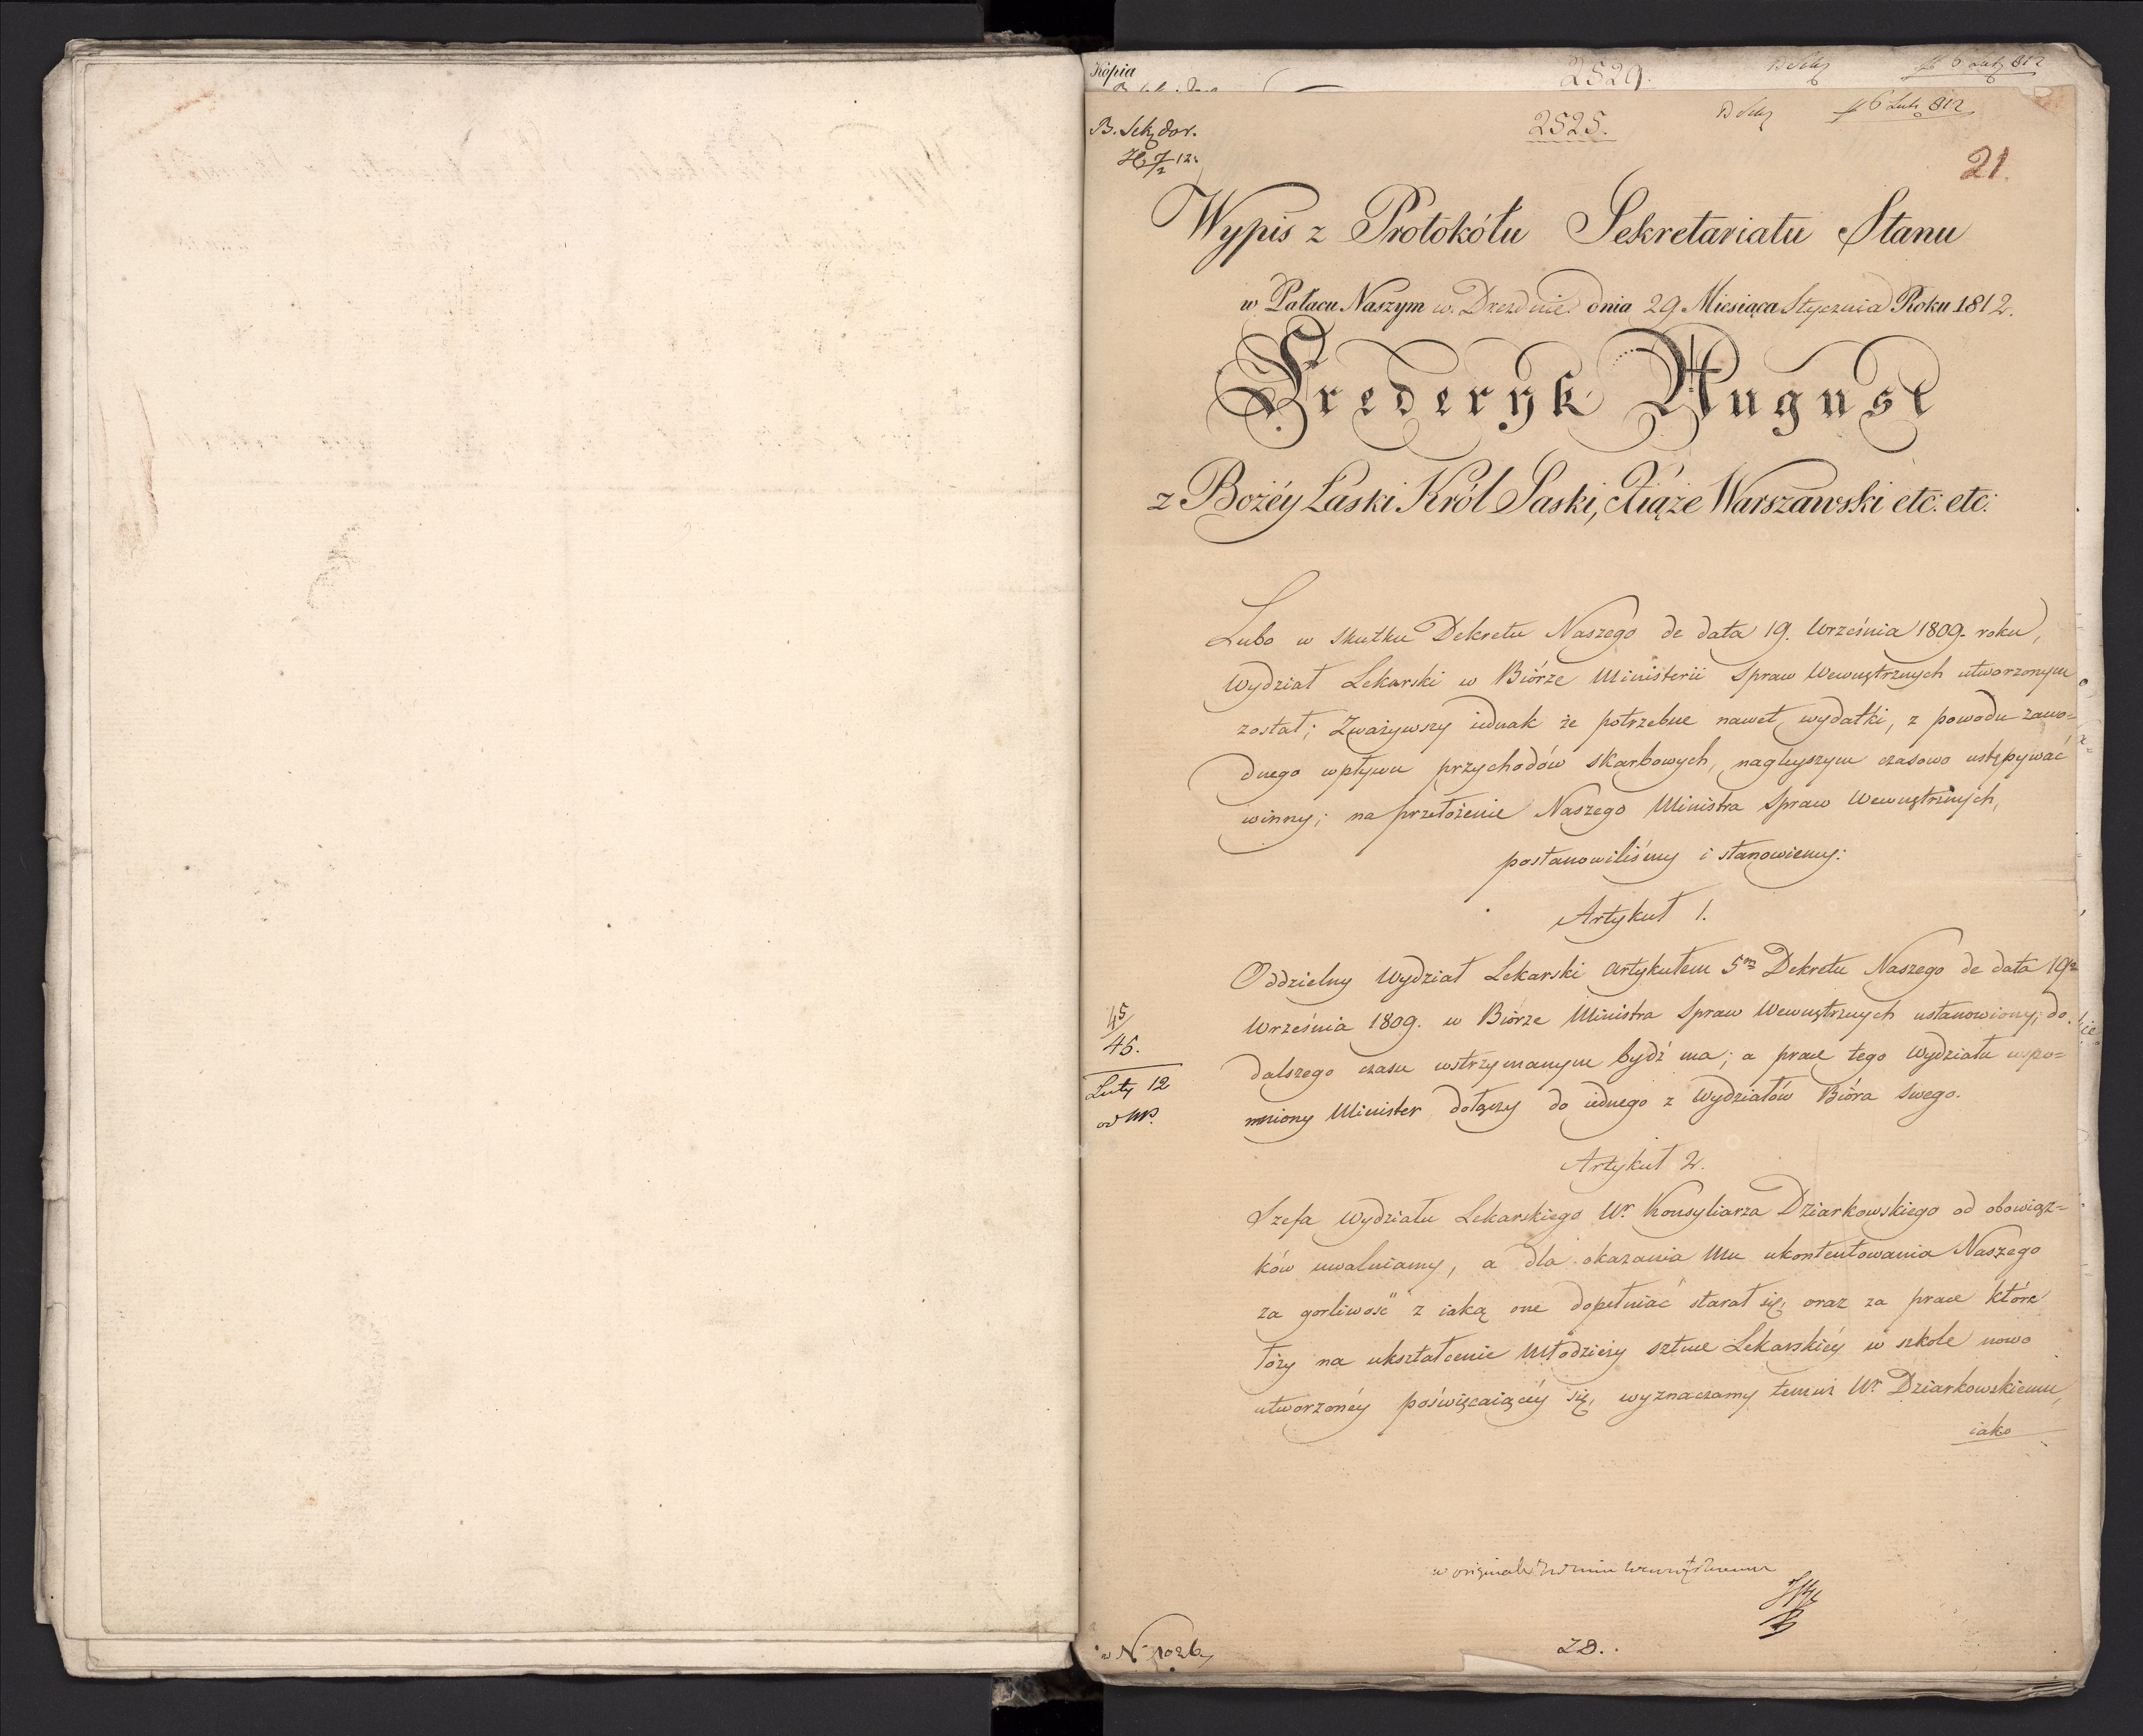 Kopia
2529.
6 Luty 812
B. Sek. dor.
2525.
6 Lut. 812
21.
Wypis z Protokółu Sekretariatu Stanu
w Pałacu Naszym w Dreznie dnia 29 Miesiąca Stycznia Roku 1812.
Frederyk August
z Bożéy Łaski Król Saski, Xiąże Warszawski etc: etc:
Lubo w skutku Dekretu Naszego de data 19. Września 1809. roku,
Wydział Lekarski w Biórze Ministerii Spraw Wewnętrznych utworzonym
został; Zważywszy iednak że potrzebne nawet wydatki, z powodu zawo=
dnego wpływu przychodów skarbowych, nagleyszym czasowo ustępywać
winny; na przełożenie Naszego Ministra Spraw Wewnętrznych,
postanowiliśmy i stanowiemy:
Artykuł 1.
Oddzielny Wydział Lekarski artykułem 5m Dekretu Naszego de data 19º
Września 1809. w Biórze Ministra Spraw Wewnętrznych ustanowiony, do
dalszego czasu wstrzymanym bydź ma; a prace tego Wydziału wspo=
mniony Minister dołączy do iednego z Wydziałów Bióra swego.
45
45.
Luty 12
Artykuł 2.
Szefa Wydziału Lekarskiego Wº Konsyliarza Dziarkowskiego od obowiąz=
ków uwalniamy, a dla okazania Mu ukontentowania Naszego
za gorliwość z iaką one dopełniać starał się, oraz za prace które
łoży na ukształcenie Młodzieży sztuce Lekarskiéy w szkole nowo
utworzonéy poświęcaiącéy się, wyznaczamy temuż Wº Dziarkowskiemu,
iako
w N 1026
ZD.